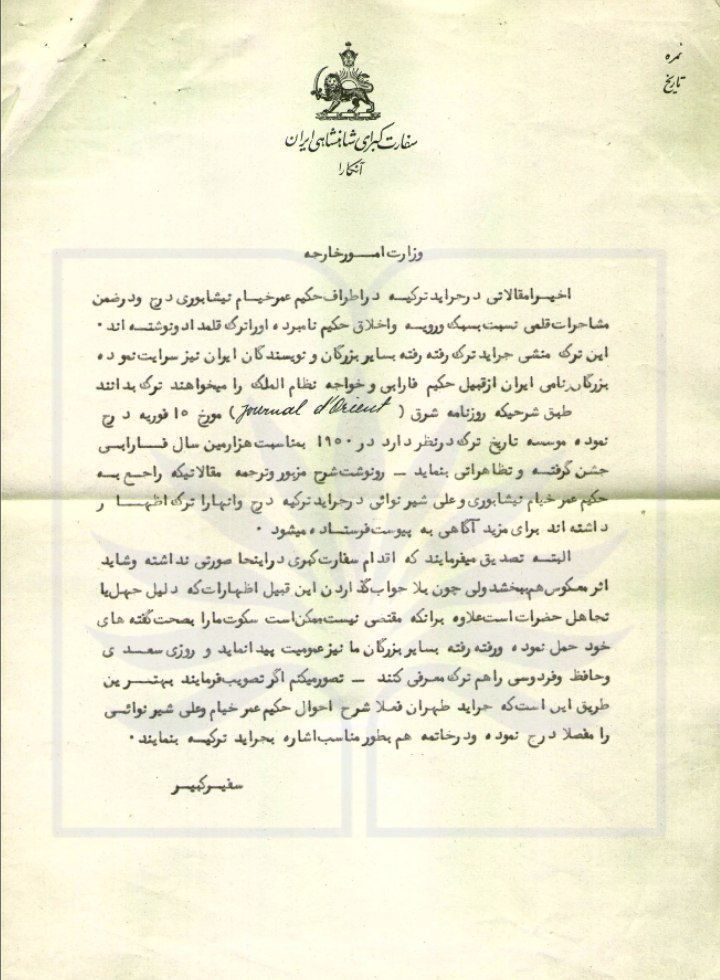 نمره
تاریخ
سفارت کبرای شاهنشاهی ایران
آنکارا
وزارت امور خارجه
اخیرا مقالاتی در جراید ترکیه در اطراف حکیم عمر خیام نیشابوری درج و در ضمن
مشاجرات قلمی نسبت بسبک و رویه و اخلاق حکیم نامبرده او را ترک قلمداد و نوشته اند ۰
این ترک منشی جراید ترک رفته رفته بسایر بزرگان و نویسندگان ایران نیز سرایت نموده
بزرگان نامی ایران از قبیل حکیم فارابی و خواجه نظام الملک را میخواهند ترک بدانند
طبق شرحیکه روزنامه شرق ( Journal d'Orient ) مورخ ۱۵ فوریه درج
نموده موسسه تاریخ ترک در نظر دارد در ۱۹۵۰ بمناسبت هزارمین سال فارابی
جشن گرفته و تظاهراتی بنماید ـ رونوشت شرح مزبور و ترجمه مقالاتیکه راجع به
حکیم عمر خیام نیشابوری و علی شیر نوائی در جراید ترکیه درج و انها را ترک اظهار
داشته اند برای مزید آگاهی به پیوست فرستاده میشود ۰
البته تصدیق میفرمایند که اقدام سفارت کبری در اینجا صورتی نداشته و شاید
اثر معکوس هم ببخشد ولی چون بلا جواب گذاردن این قبیل اظهارات که دلیل جهل یا
تجاهل حضرات است علاوه بر انکه مقتضی نیست ممکن است سکوت ما را بصحت گفته های
خود حمل نموده و رفته رفته بسایر بزرگان ما نیز عمومیت پیدا نماید و روزی سعدی
و حافظ و فردوسی را هم ترک معرفی کنند ـ تصور میکنم اگر تصویب فرمایند بهترین
طریق این است که جراید طهران فعلا شرح احوال حکیم عمر خیام و علی شیر نوائی
را مفصلا درج نموده و در خاتمه هم بطور مناسب اشاره بجراید ترکیه بنمایند ۰
سفیر کبیر